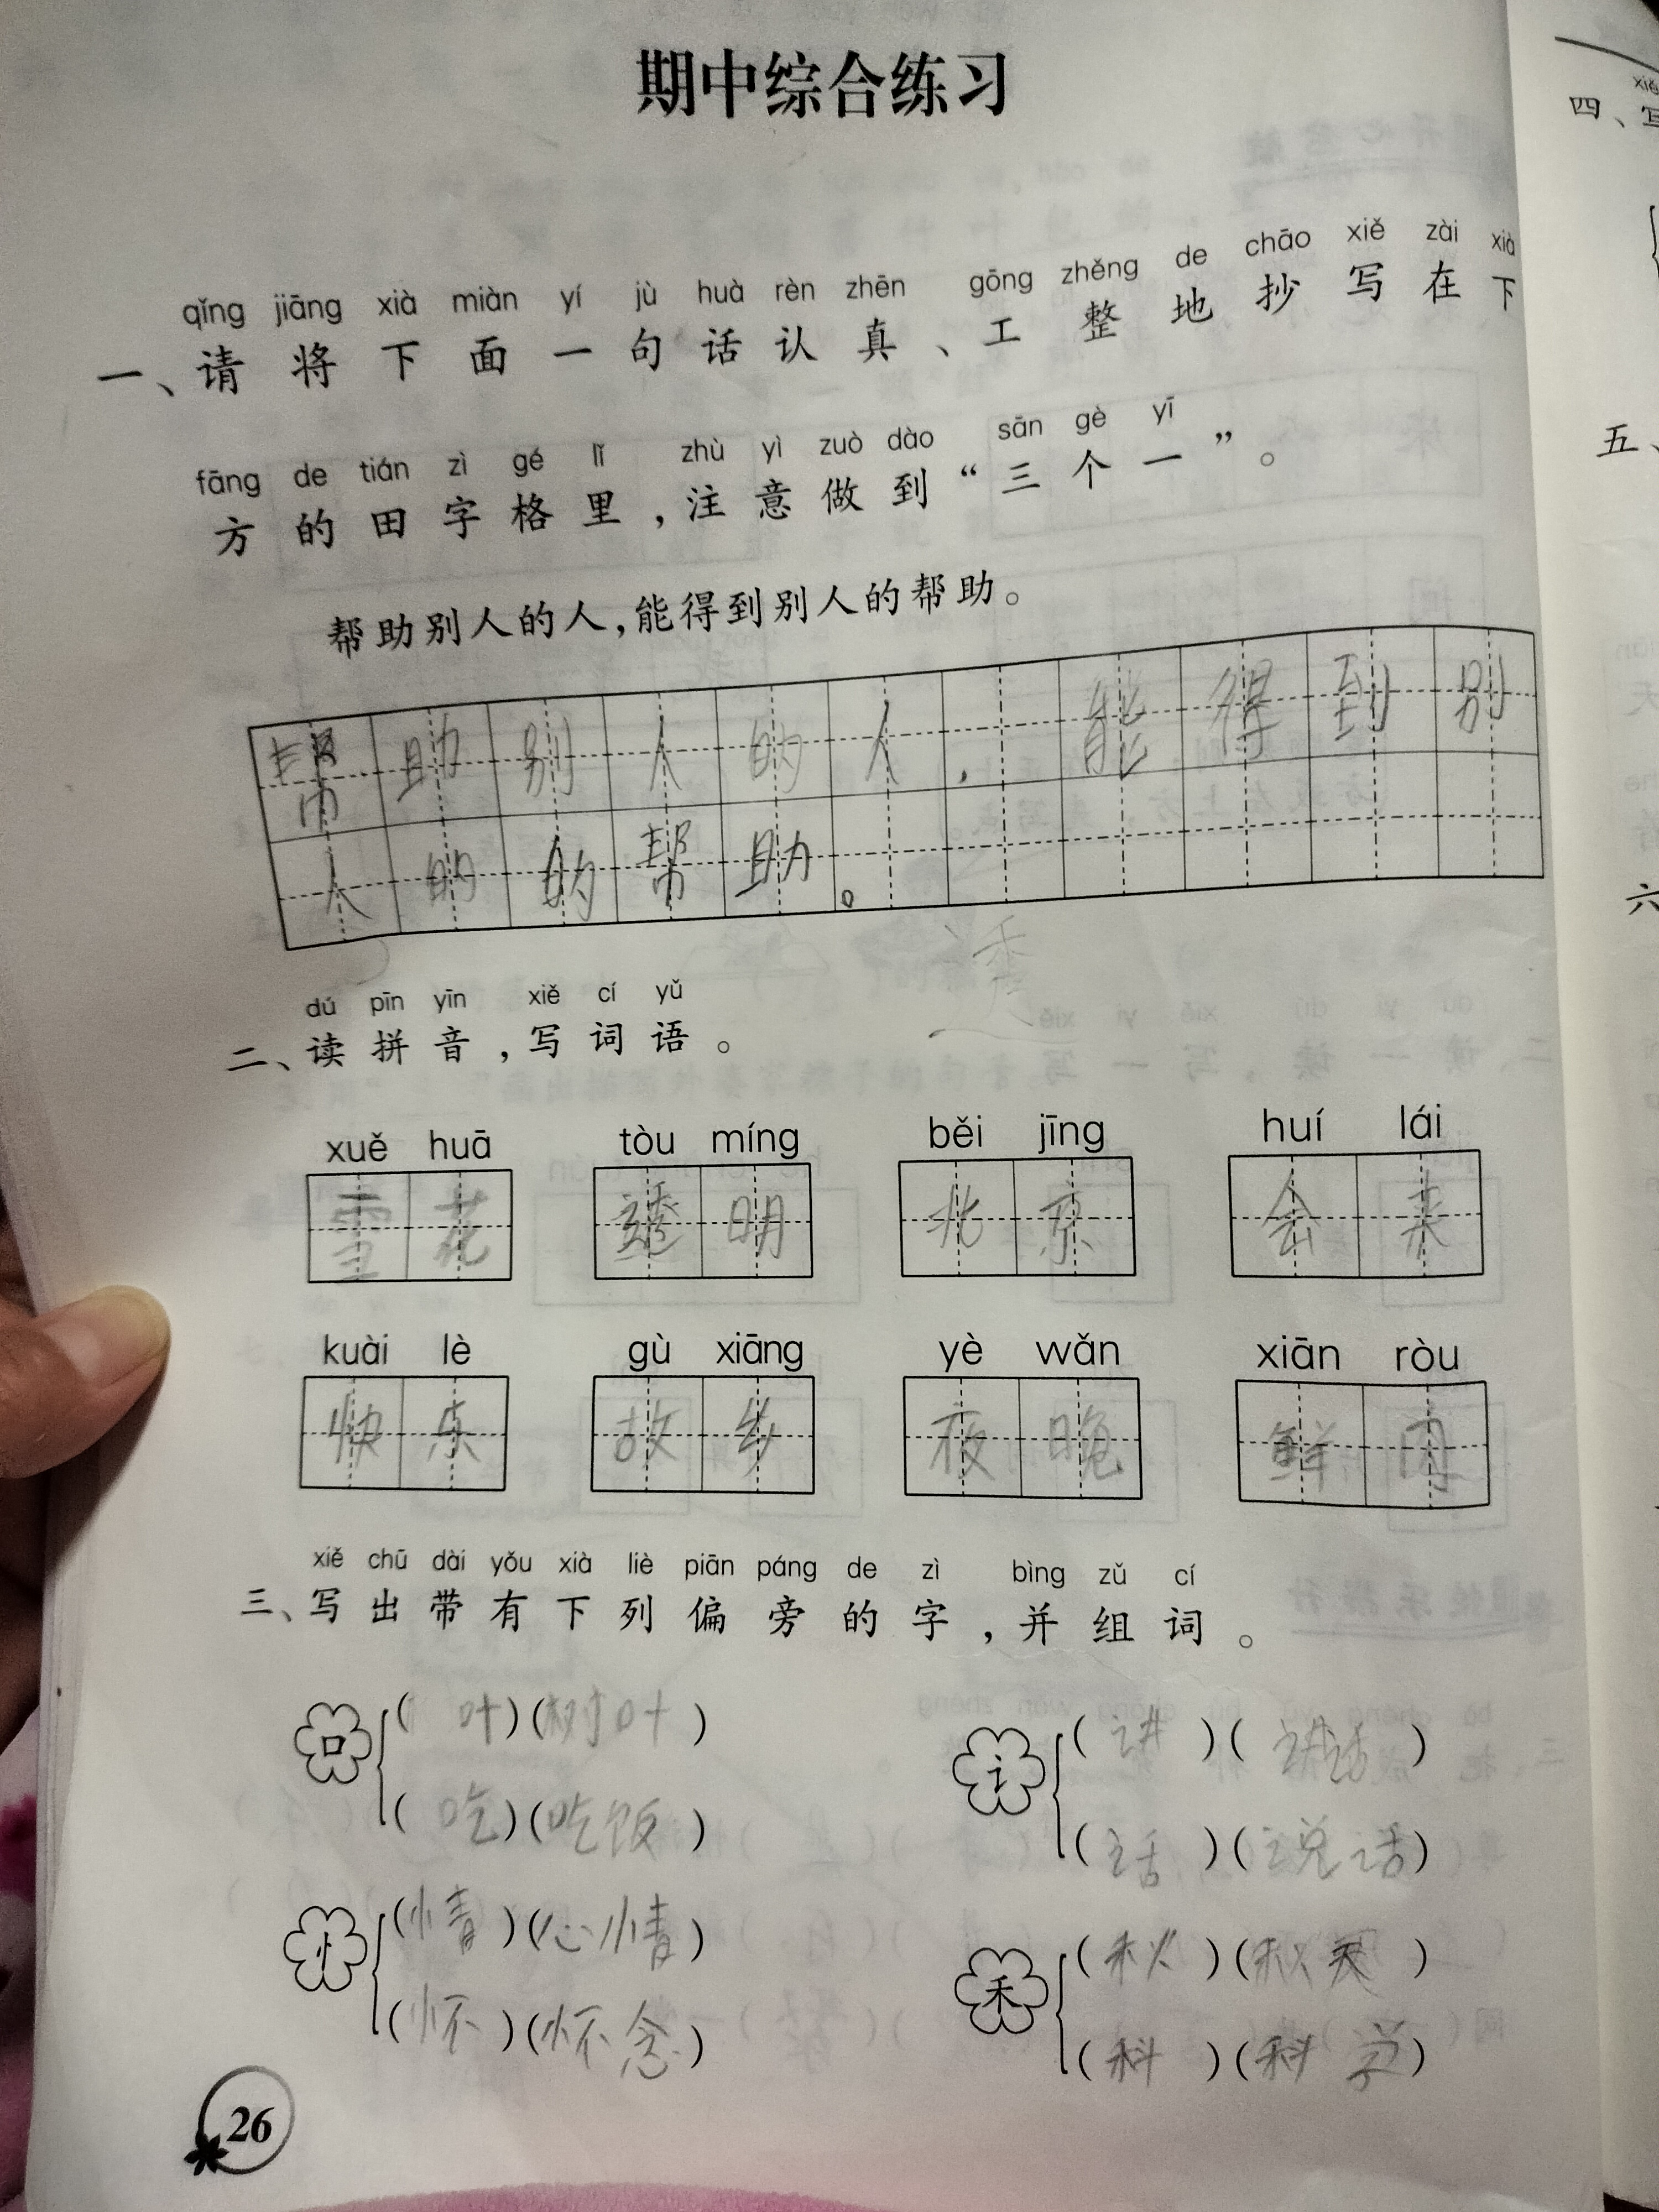 期中综合练习
qǐng jiāng xià miàn yí jù huà rèn zhēn gōng zhěng de chāo xiě zài xià
一、请将下面一句话认真、工整地抄写在下
fāng de tián zì gé lǐ zhù yì zuò dào sān gè yī
方的田字格里,注意做到“三个一”。
帮助别人的人,能得到别人的帮助。
帮助别人的人,能得到别
人的的帮助。
透
dú pīn yīn xiě cí yǔ
二、读拼音,写词语。
xuě huā tòu míng běi jīng huí lái
雪花 透明 北京 会来
kuài lè gù xiāng yè wǎn xiān ròu
快乐 故乡 夜晚 鲜肉
xiě chū dài yǒu xià liè piān páng de zì bìng zǔ cí
三、写出带有下列偏旁的字,并组词。
口 (叶)(树叶) 讠 (讲)(讲话)
(吃)(吃饭) (话)(说话)
忄 (情)(心情) 禾 (秋)(秋天)
(怀)(怀念) (科)(科学)
26
xiě
四、写
五、
六